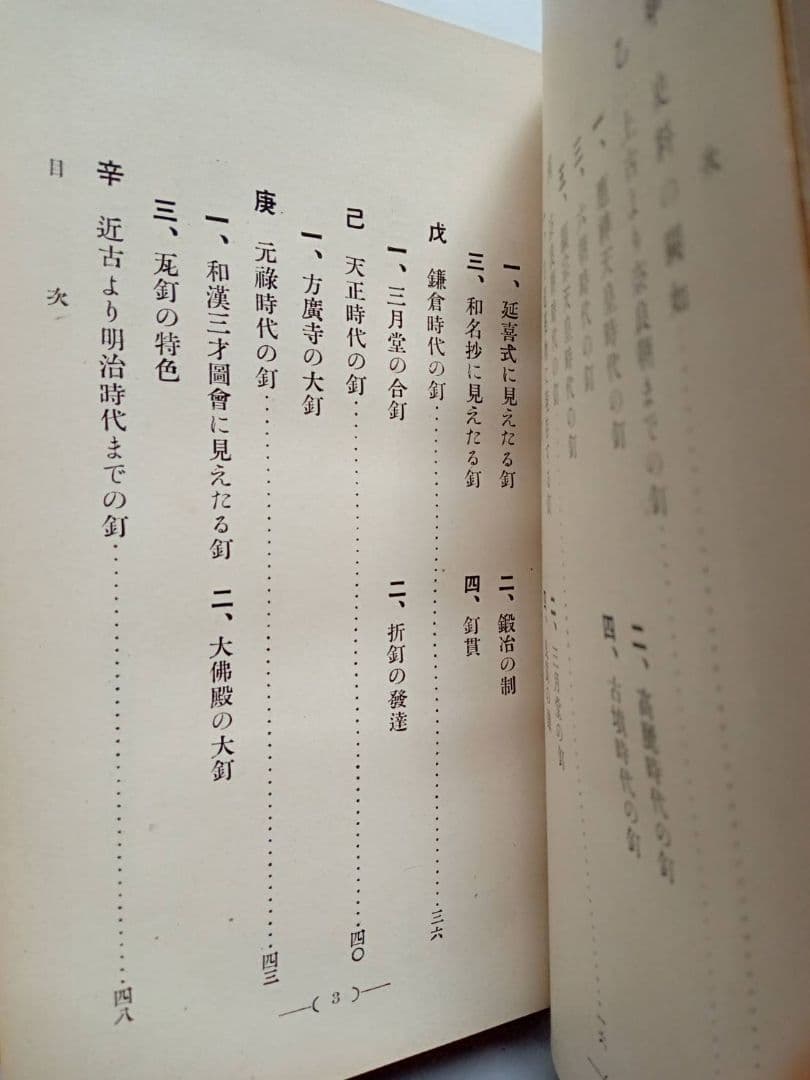 上古より奈良朝までの釘
二、高麗時代の釘
四、古墳時代の釘
三月堂の釘
一、延喜式に見えたる釘　二、鍛冶の制
三、和名抄に見えたる釘　四、釘貫
戊　鎌倉時代の釘……三六
一、三月堂の合釘　二、折釘の發達
己　天正時代の釘……四〇
一、方廣寺の大釘
庚　元祿時代の釘……四三
一、和漢三才圖會に見えたる釘　二、大佛殿の大釘
三、瓦釘の特色
辛　近古より明治時代までの釘……四八
目次
(3)